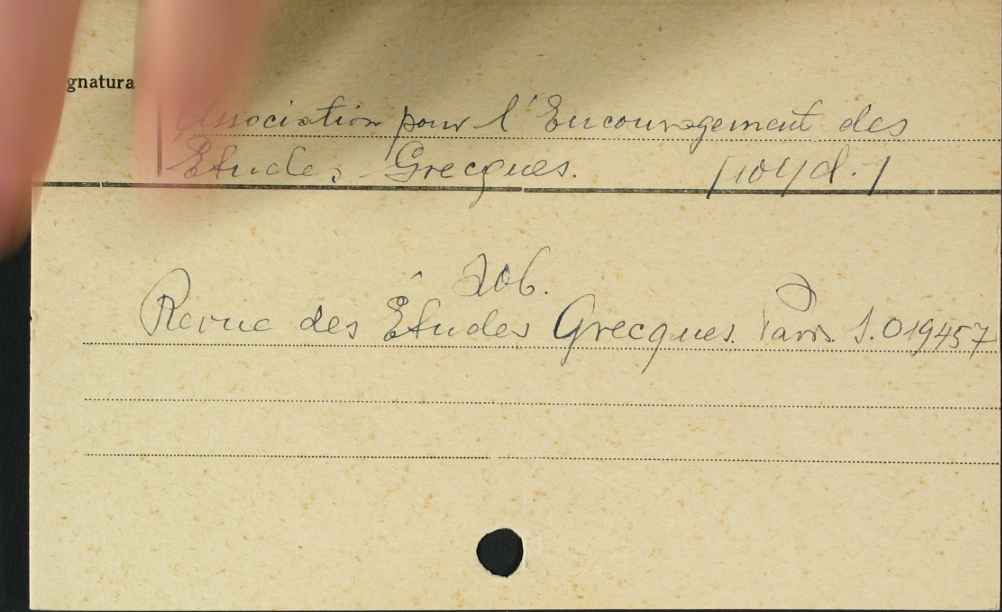 gnatura
Association pour l'Encouragement des
Etudes Grecques.
206.
Revue des Études Grecques. Paris. S.019457